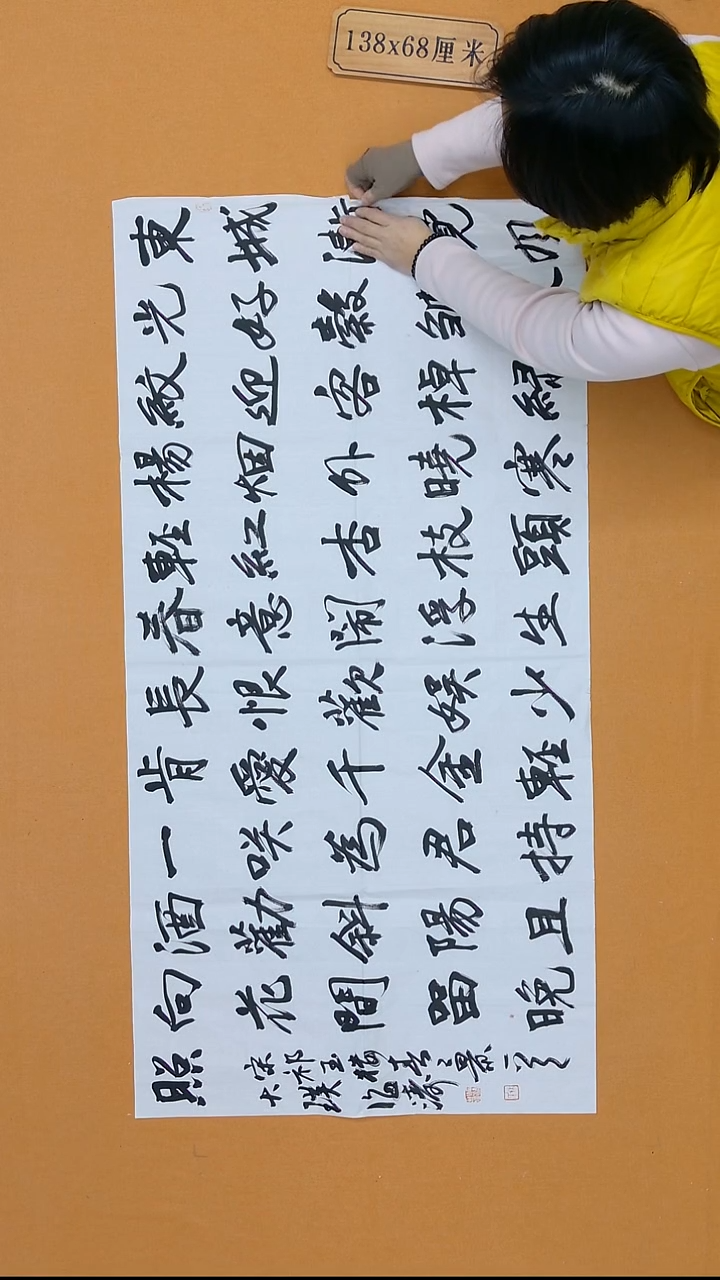 138x68厘米
東城漸覺
光好縠皺
紋迎客棹綠
楊烟外曉寒
輕紅杏枝頭
春意鬧浮生
長恨歡娱少
肯愛千金輕
一咲為君持
酒勸斜陽且
向花間留晚
照
宋祁玉楼春之景